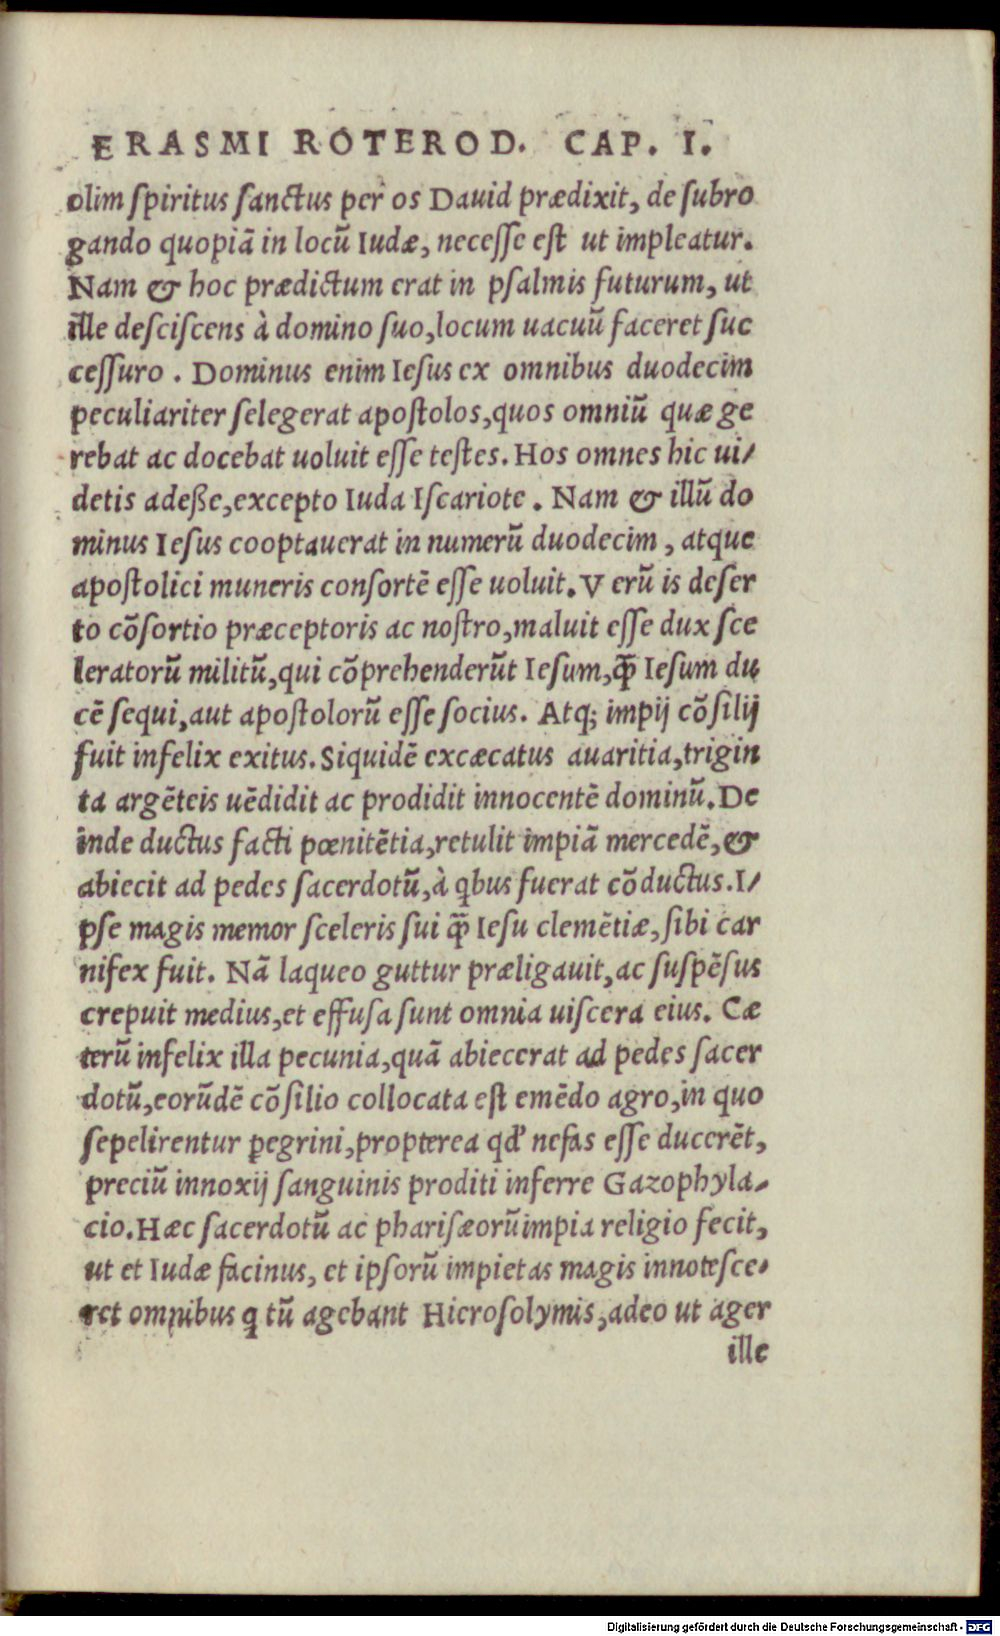 ERASMI ROTEROD. CAP. I.
olim spiritus sanctus per os Dauid prædixit, de subro
gando quopiā in locū Iudæ, necesse est ut impleatur.
Nam & hoc prædictum erat in psalmis futurum, ut
ille desciscens à domino suo, locum uacuū faceret suc
cessuro. Dominus enim Iesus ex omnibus duodecim
peculiariter selegerat apostolos, quos omniū quæ ge
rebat ac docebat uoluit esse testes. Hos omnes hic ui/
detis adeße, excepto Iuda Iscariote. Nam & illū do
minus Iesus cooptauerat in numerū duodecim, atque
apostolici muneris consortē esse uoluit. V erū is deser
to cōsortio præceptoris ac nostro, maluit esse dux sce
leratorū militū, qui cōprehenderūt Iesum, q̄ꝫ Iesum du
cē sequi, aut apostolorū esse socius. Atq; impij cōsilij
fuit infelix exitus. Siquidē excæcatus auaritia, trigin
ta argēteis uēdidit ac prodidit innocentē dominū. De
inde ductus facti pœnitētia, retulit impiā mercedē, &
abiecit ad pedes sacerdotū, à qbus fuerat cōductus. I/
pse magis memor sceleris sui q̄ꝫ Iesu clemētiæ, sibi car
nifex fuit. Nā laqueo guttur præligauit, ac suspēsus
crepuit medius, et effusa sunt omnia uiscera eius. Cæ
terū infelix illa pecunia, quā abiecerat ad pedes sacer
dotū, eorūdē cōsilio collocata est emēdo agro, in quo
sepelirentur ꝑegrini, propterea qd' nefas esse ducerēt,
preciū innoxij sanguinis proditi inferre Gazophyla/
cio. Hæc sacerdotū ac pharisæorū impia religio fecit,
ut et Iudæ facinus, et ipsorū impietas magis innotesce/
ret omnibus q tū agebant Hierosolymis, adeo ut ager
ille
Digitalisierung gefördert durch die Deutsche Forschungsgemeinschaft - DFG